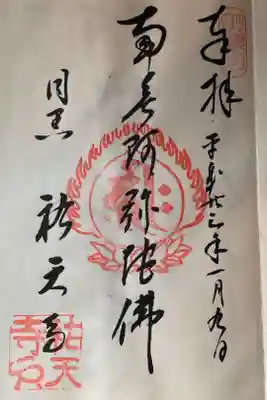 奉拝 平成廿三年一月九日
南無阿弥陀佛
目黒 祐天寺
祐天
寺印